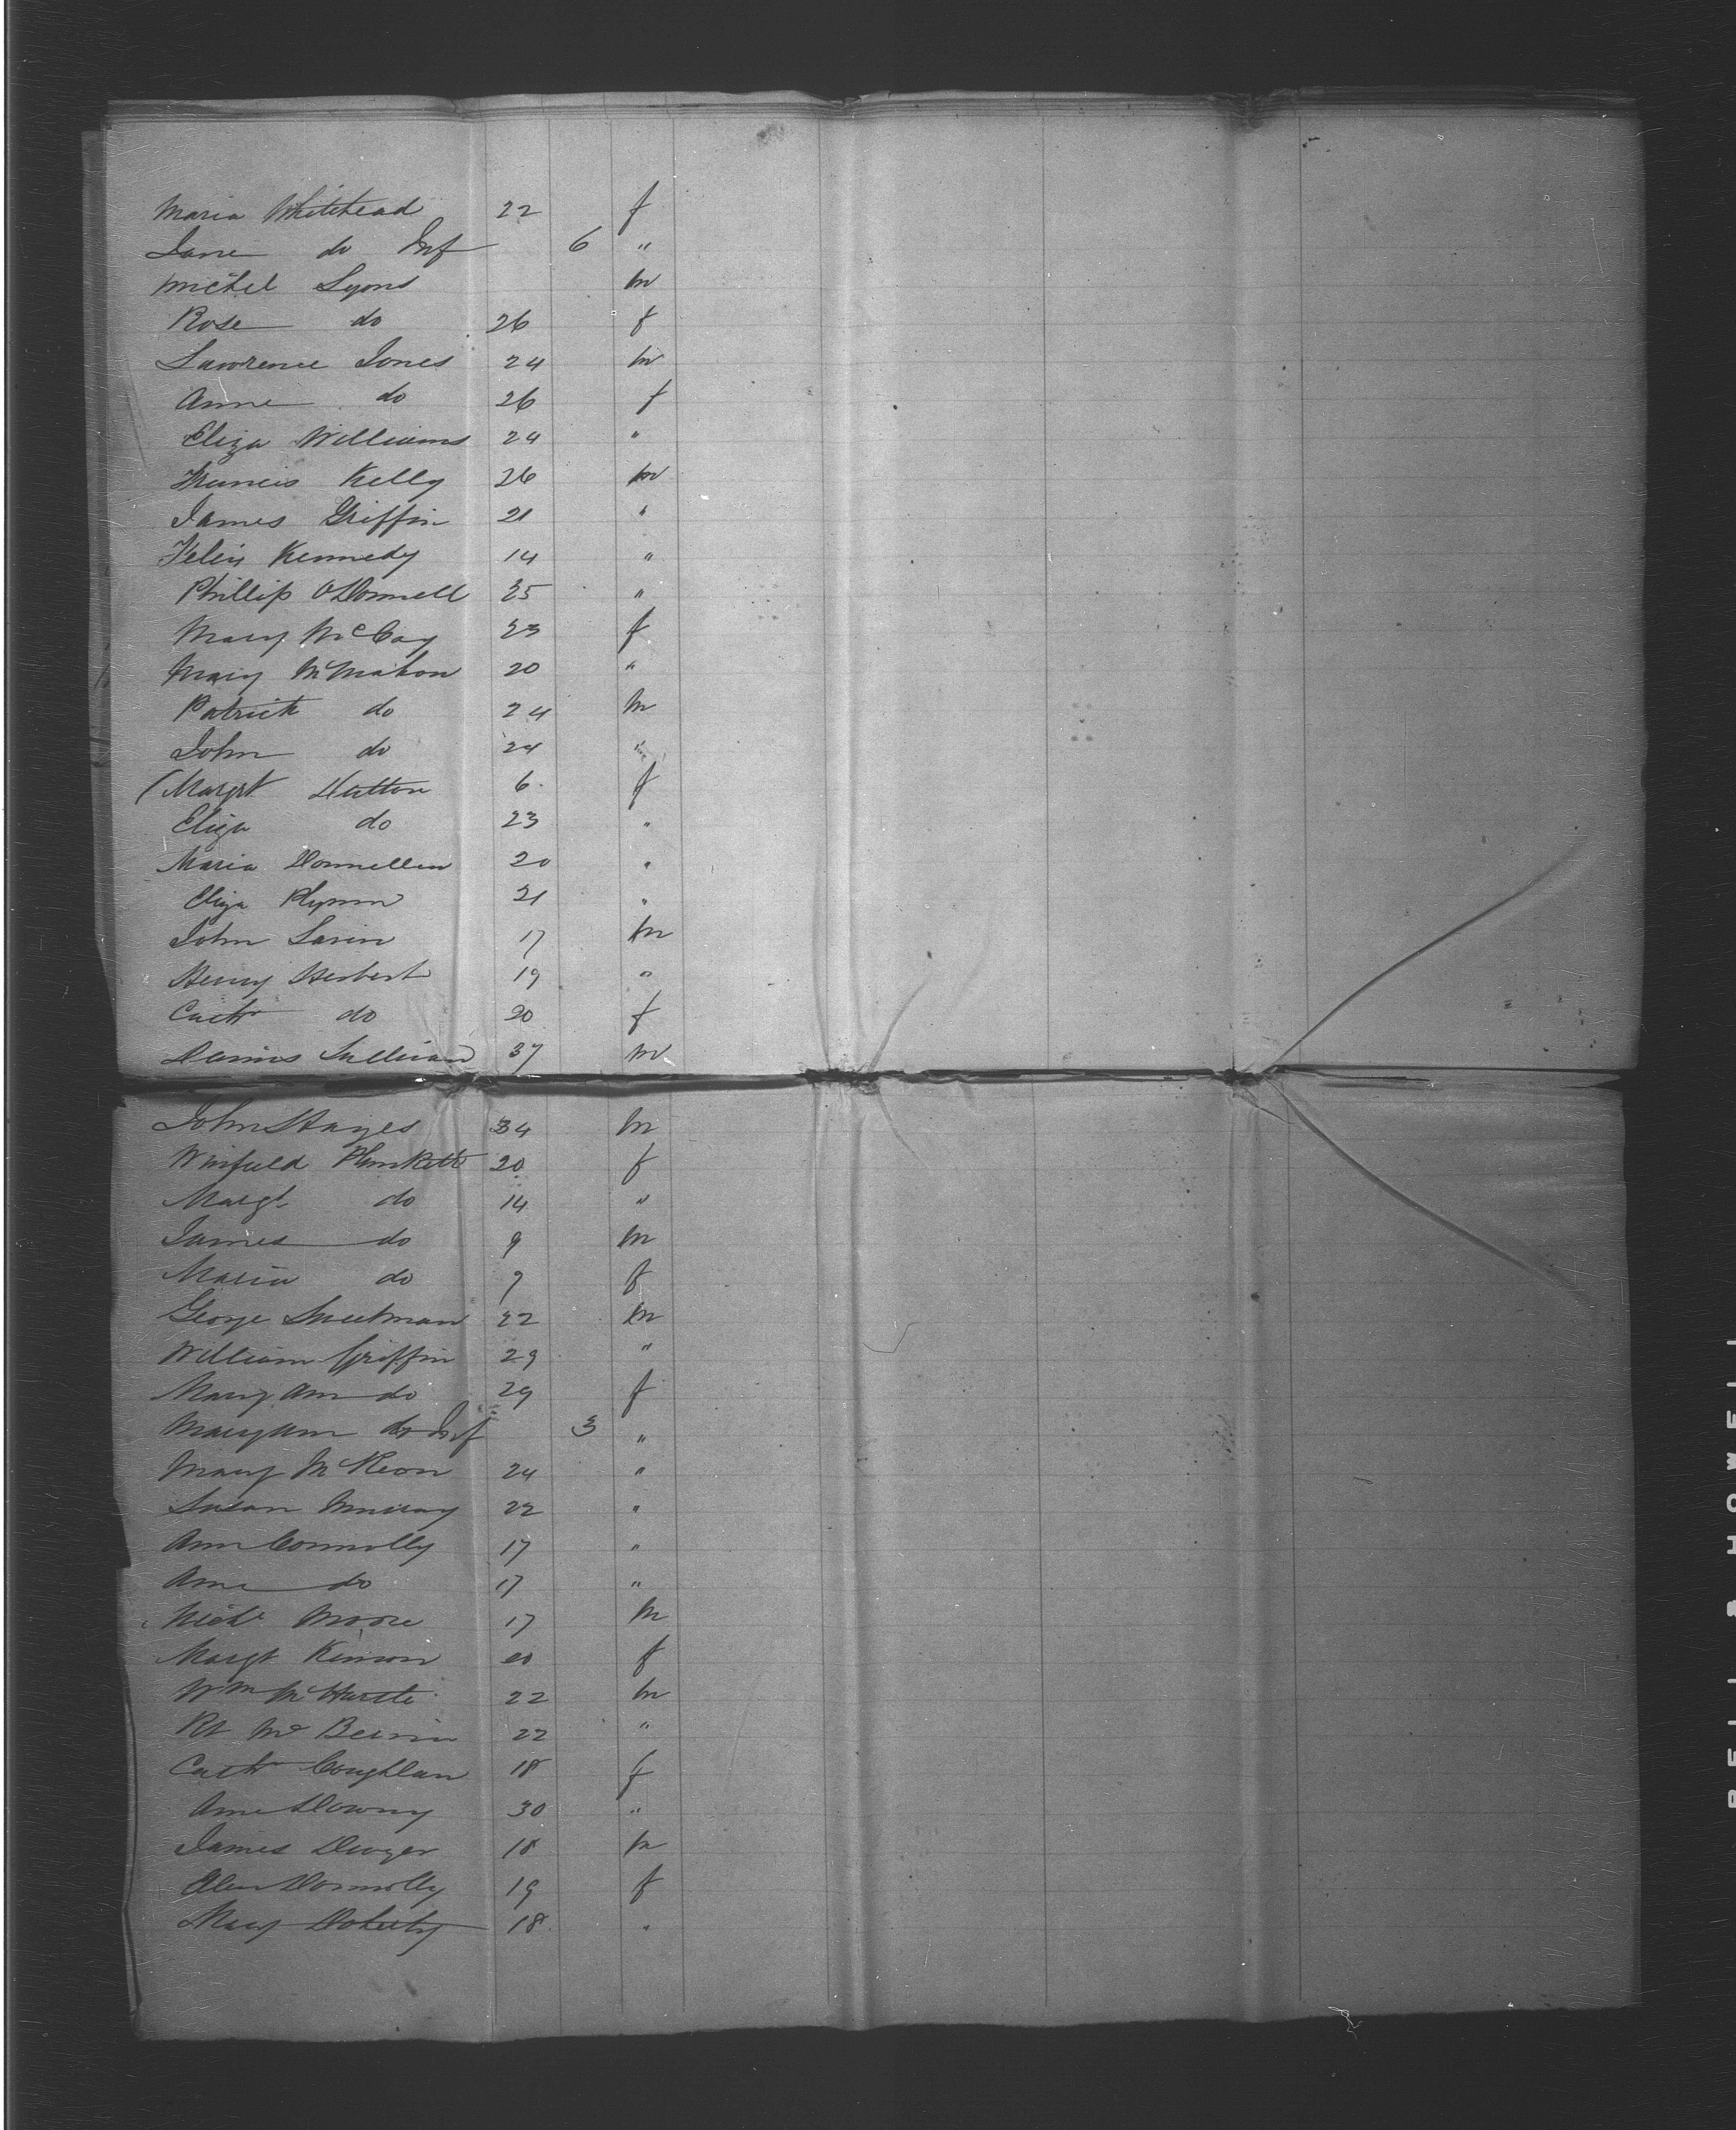 Maria Whitehead 22 f
Jane do Inf 6 "
Michel Lyons m
Rose do 26 f
Lawrence Jones 24 m
Anne do 26 f
Eliza Williams 24 "
Francis Kelly 26 m
James Griffin 21 "
Felix Kennedy 14 "
Phillip O'Donnell 25 "
Mary McCoy 23 f
Mary McMahon 20 "
Patrick do 24 m
John do 24 "
Margrt Hutton 6 f
Eliza do 23 "
Maria Donnellan 20 "
Eliza Flynn 21 "
John Lavin 17 m
Henry Herbert 19 "
Cath do 20 f
Dennis Sullivan 37 m
John Hayes 34 m
Winfield Plunkett 20 f
Margt do 14 "
James do 9 m
Maria do 7 f
George Sweetman 22 m
William Griffin 29 "
Mary Ann do 29 f
Mary Ann do Inf 3 "
Mary McKeon 24 "
Susan Murray 22 "
Ann Connolly 17 "
Anne do 17 "
Michl Moore 17 m
Margt 20 f
Wm 22 m
Rt 22 "
Cath Coughlan 18 f
Anne Downy 30 "
James Dwyer 18 m
Ellen Donnolly 19 f
Mary Doherty 18 "
BELL & HOWELL